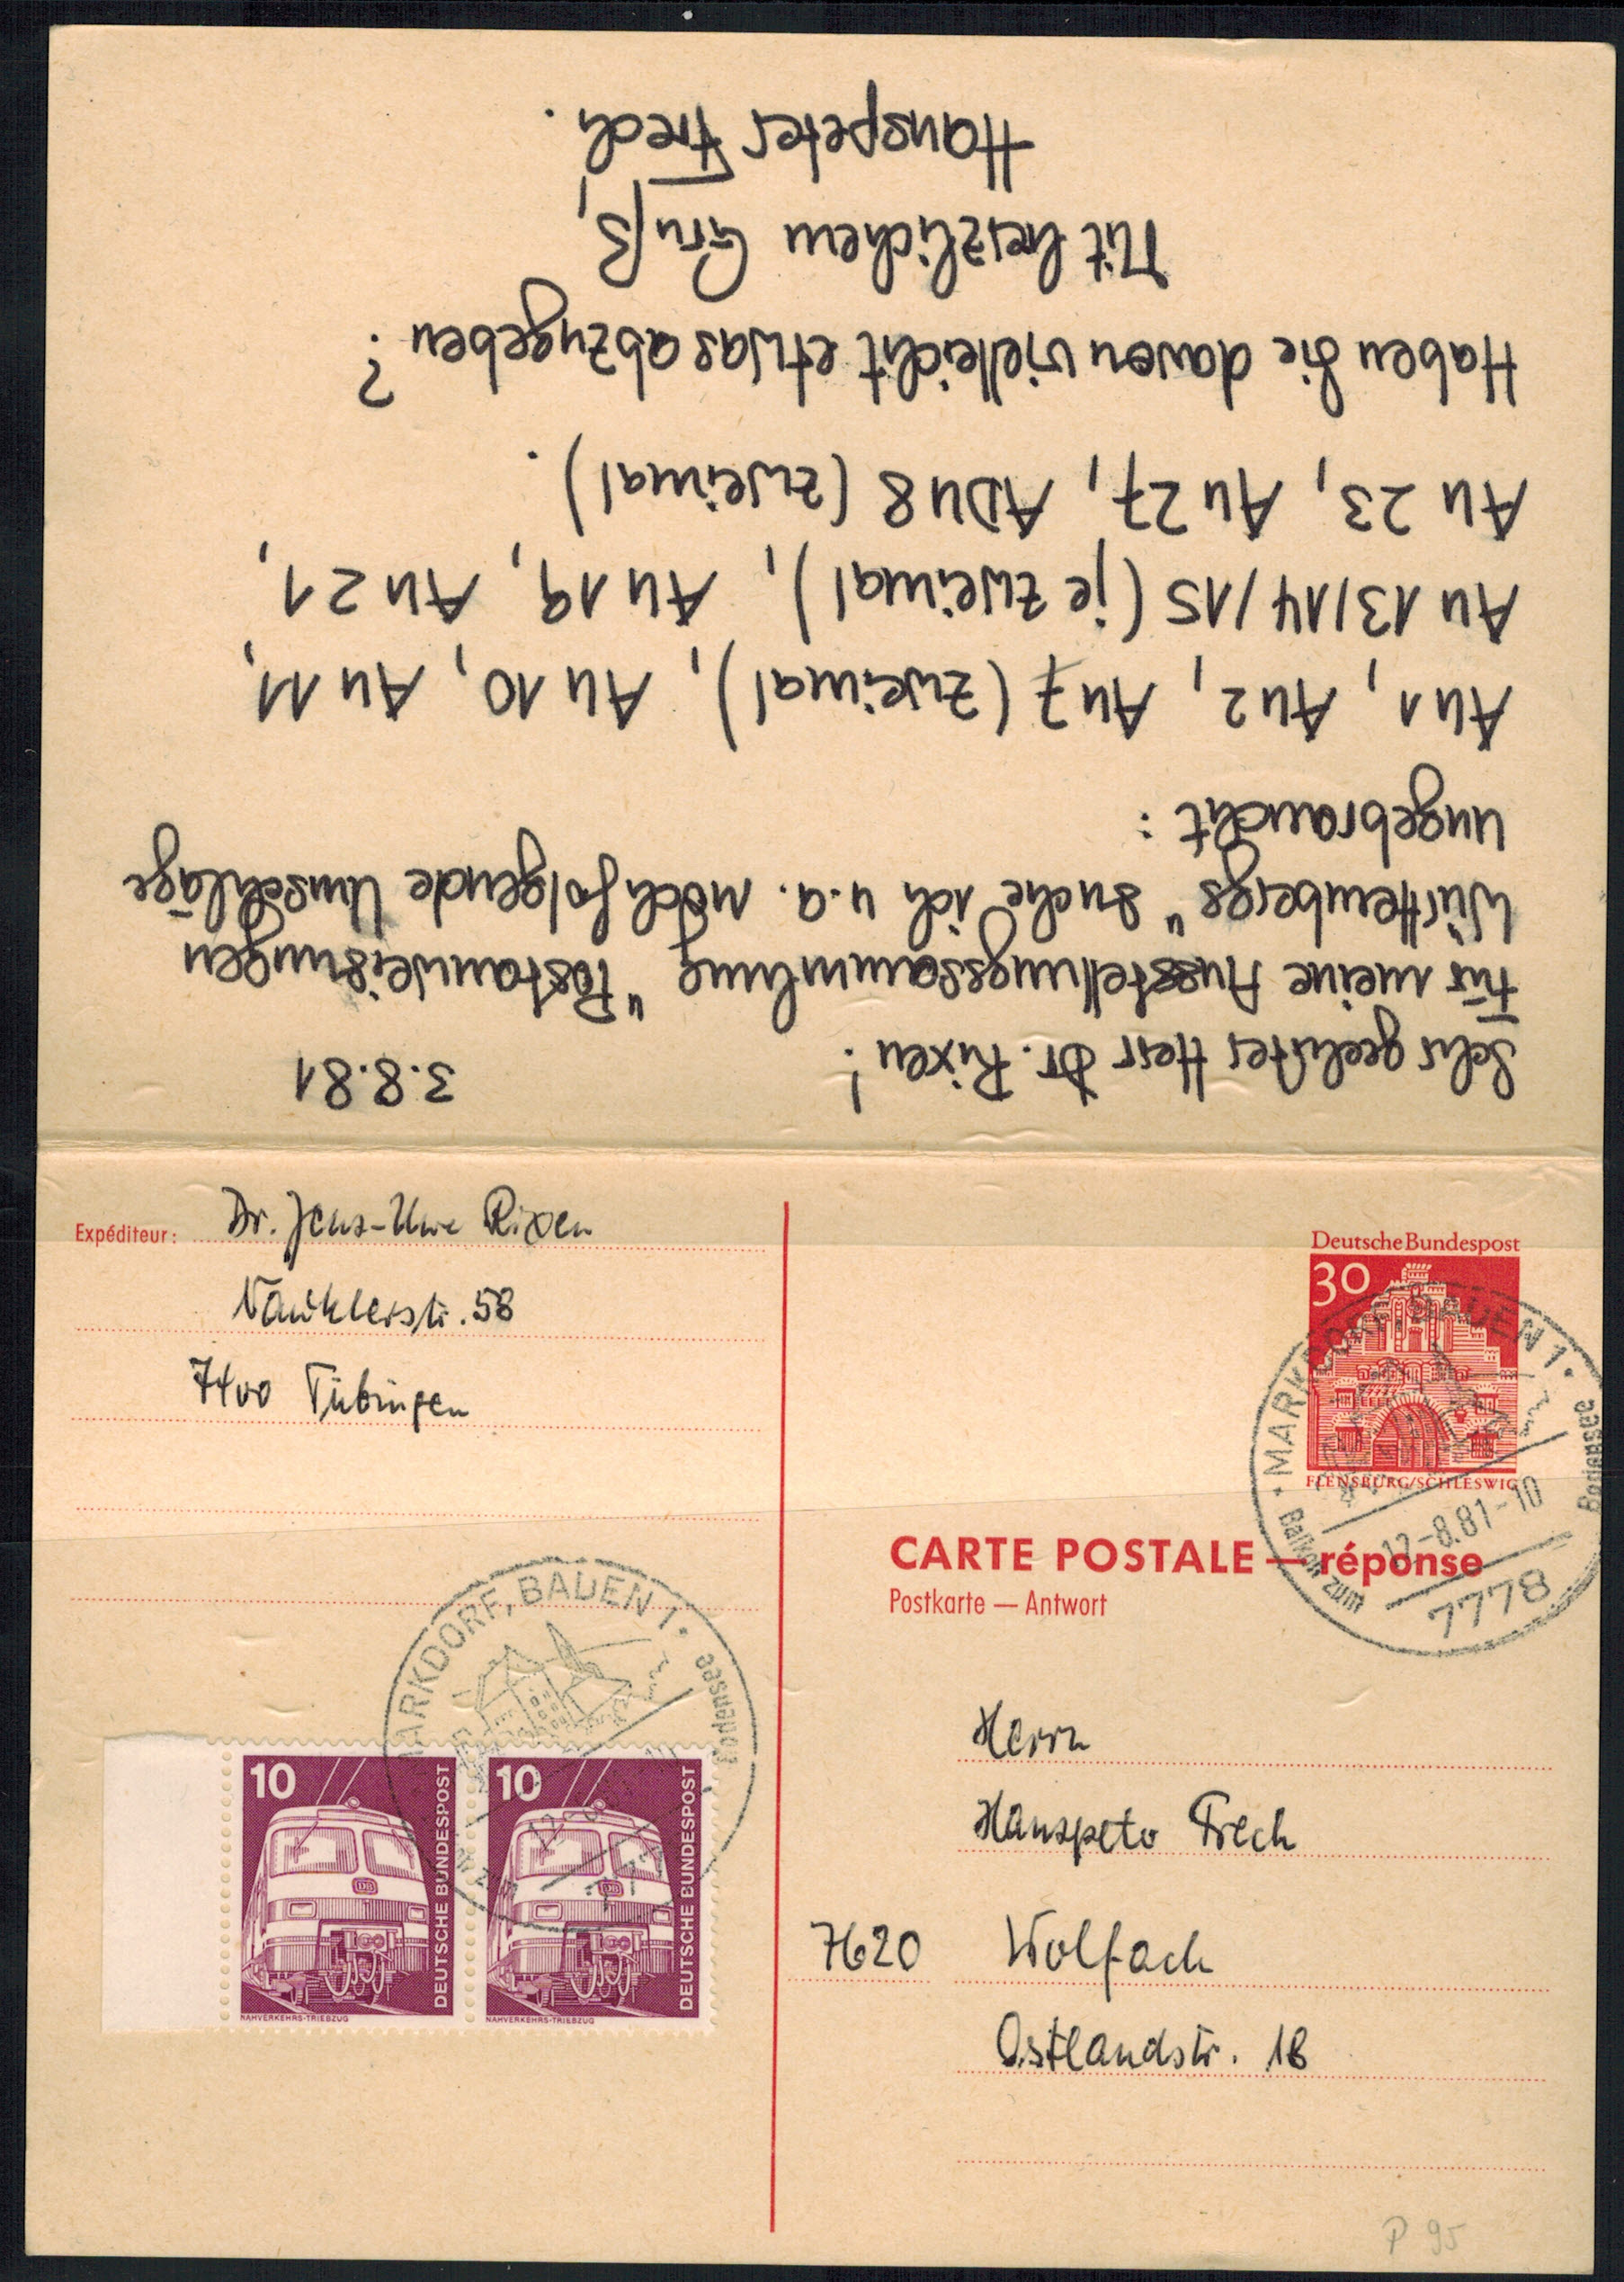 Sehr geehrter Herr Dr. Rixen! 3.8.81
Für meine Ausstellungssammlung "Postanweisungen
Württembergs" suche ich u.a. noch folgende Umschläge
ungebraucht:
AU 1, AU 2, AU 7 (zweimal), AU 10, AU 11,
AU 13/14/15 (je zweimal), AU 19, AU 21,
AU 23, AU 27, ADU 8 (zweimal).
Haben Sie davon vielleicht etwas abzugeben?
Mit herzlichem Gruß,
Hanspeter Frech.
Expéditeur: Dr. Jens-Uwe Rixen
Nauklerstr. 58
7400 Tübingen
MARKDORF, BADEN 1
Bodensee
10
DEUTSCHE BUNDESPOST
NAHVERKEHRS-TRIEBZUG
10
DEUTSCHE BUNDESPOST
NAHVERKEHRS-TRIEBZUG
Deutsche Bundespost
30
FLENSBURG/SCHLESWIG
MARKDORF, BADEN 1
Balkon zum Bodensee
12.-8.81-10
7778
CARTE POSTALE — réponse
Postkarte — Antwort
Herrn
Hanspeter Frech
7620 Wolfach
Ostlandstr. 18
P 95